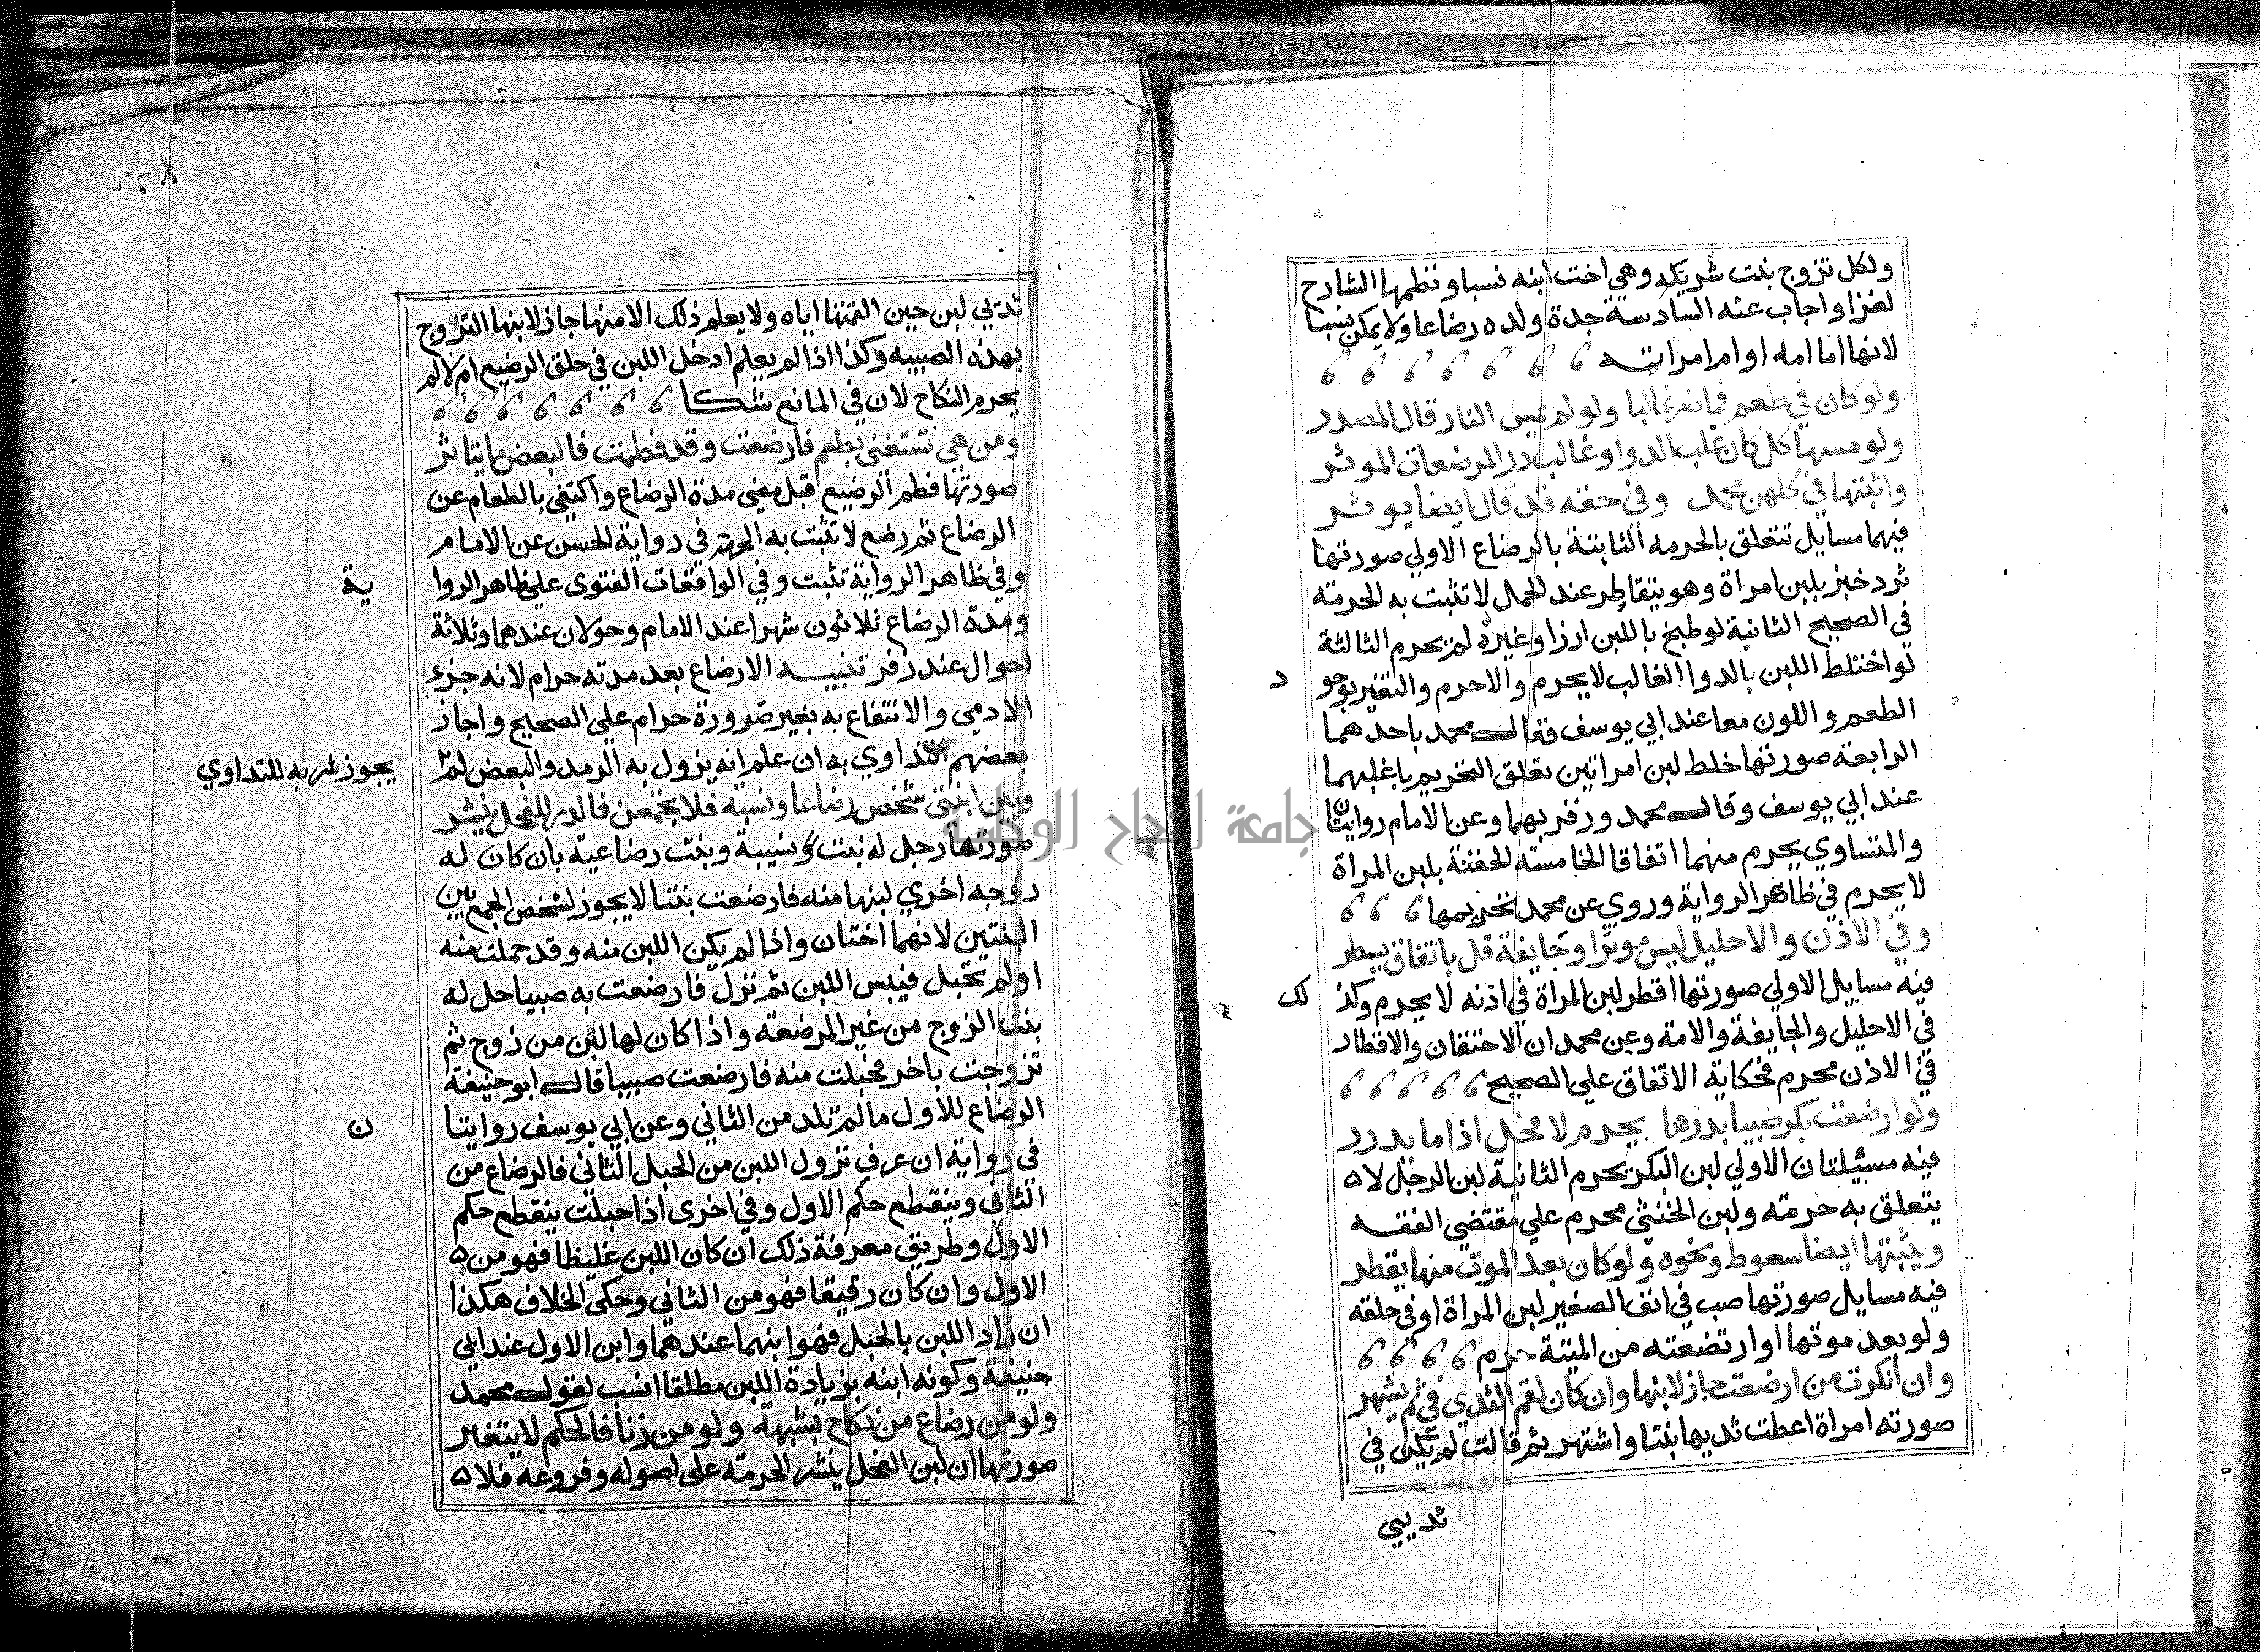 ولكل تزوج بنت شريكه وهي اخت ابنه نسبا ونظمها الشارح
لغزا واجاب عنه السادسة جدة ولده رضاعا ولا يمكن نسبا
لانها اما امه او ام امراته
ولو كان في طعم فما ضر غالبا ولو لم يمس النار قال المصدر
ولو مسها كل كان غلب الدوا وغالب در المرضعات الموثر
واثبتها في كلهن محمد وفي حقنه قد قال ايضا يوثر
فيهما مسايل تتعلق بالحرمه الثابتة بالرضاع الاولي صورتها
ثرد خبز بلبن امراة وهو يتقاطر عند الحمل لا تثبت به الحرمة
في الصحيح الثانية لو طبخ باللبن ارزا وغيره لم يحرم الثالثة
لو اختلط اللبن بالدوا الغالب لا يحرم والا حرم والتغير بوجو
د
الطعم واللون معا عند ابي يوسف فقال محمد باحدهما
الرابعة صورتها خلط لبن امراتين تعلق التحريم باغلبهما
عند ابي يوسف وقال محمد وزفر بهما وعن الامام روايتان
والمتساوي يحرم منهما اتفاقا الخامسة الحقنة بلبن المراة
لا يحرم في ظاهر الرواية وروي عن محمد تحريمها
وفي الاذن والاحليل ليس موثرا وجايفة قل باتفاق يسطر
فيه مسايل الاولي صورتها اقطر لبن المراة في اذنه لا يحرم وكذ
لك
في الاحليل والجايفة والامة وعن محمد ان الاحتقان والاقطار
في الاذن محرم فحكاية الاتفاق علي الصحيح
ولو ارضعت بكر صبيا بدرها يحرم لا فحل اذا ما يدرر
فيه مسيلتان الاولي لبن البكر يحرم الثانية لبن الرجل لا
يتعلق به حرمته ولبن الخنثي محرم علي مقتضي الفقه
ويثبتها ايضا سعوط ونحوه ولو كان بعد الموت منها يقطر
فيه مسايل صورتها صب في انف الصغير لبن المراة او في حلقه
ولو بعد موتها او ارتضعته من الميتة حرم
وان انكرت من ارضعت جاز لابنها وان كان لقم الثدي في ثم يشهر
صورته امراة اعطت ثديها بنتا واشتهر ثم قالت لم يكن في
ثديي
ثديي لبن حين القمتها اياه ولا يعلم ذلك الا منها جاز لابنها التزوج
بهذه الصبيه وكذا اذا لم يعلم ادخل اللبن في حلق الرضيع ام لا لم
يحرم النكاح لان في المانع شكا
ومن هي تستغني بطعم فارضعت وقد فطمت فالبعض ما يتاثر
صورتها فطم الرضيع قبل مضي مدة الرضاع واكتفي بالطعام عن
الرضاع ثم رضع لا تثبت به الحرمة في رواية الحسن عن الامام
وفي ظاهر الرواية تثبت وفي الواقعات الفتوى علي ظاهر الروا
ية
ومدة الرضاع ثلاثون شهرا عند الامام وحولان عندهما وثلاثة
احوال عند زفر تنبيه الارضاع بعد مدته حرام لانه جزء
الادمي والانتفاع به بغير ضرورة حرام علي الصحيح واجاز
بعضهم التداوي به ان علم انه يزول به الرمد والبعض لم
يجوز شربه للتداوي
وبين ابنتي شخص رضاعا ونسبة فلا يجمعن فالدر للفحل ينشر
صورتها رجل له بنت نسيبة وبنت رضاعية بان كان له
زوجه اخري لبنها منه فارضعت بنتا لا يجوز لشخص الجمع بين
البنتين لانهما اختان واذا لم يكن اللبن منه وقد حملت منه
او لم تحبل فيبس اللبن ثم نزل فارضعت به صبيا حل له
بنت الزوج من غير المرضعة واذا كان لها لبن من زوج ثم
تزوجت باخر فحبلت منه فارضعت صبيا قال ابو حنيفة
الرضاع للاول ما لم تلد من الثاني وعن ابي يوسف روايتا
ن
في رواية ان عرف نزول اللبن من الحبل الثاني فالرضاع من
الثاني وينقطع حكم الاول وفي اخرى اذا حبلت ينقطع حكم
الاول وطريق معرفة ذلك ان كان اللبن غليظا فهو من
الاول وان كان رقيقا فهو من الثاني وحكى الخلاف هكذا
ان زاد اللبن بالحبل فهو ابنهما عندهما وابن الاول عند ابي
حنيفة وكونه ابنه بزيادة اللبن مطلقا انسب لقول محمد
ولو من رضاع من نكاح بشبهة ولو من زنا فالحكم لا يتغير
صورتها ان لبن الفحل ينشر الحرمة على اصوله وفروعه فلا